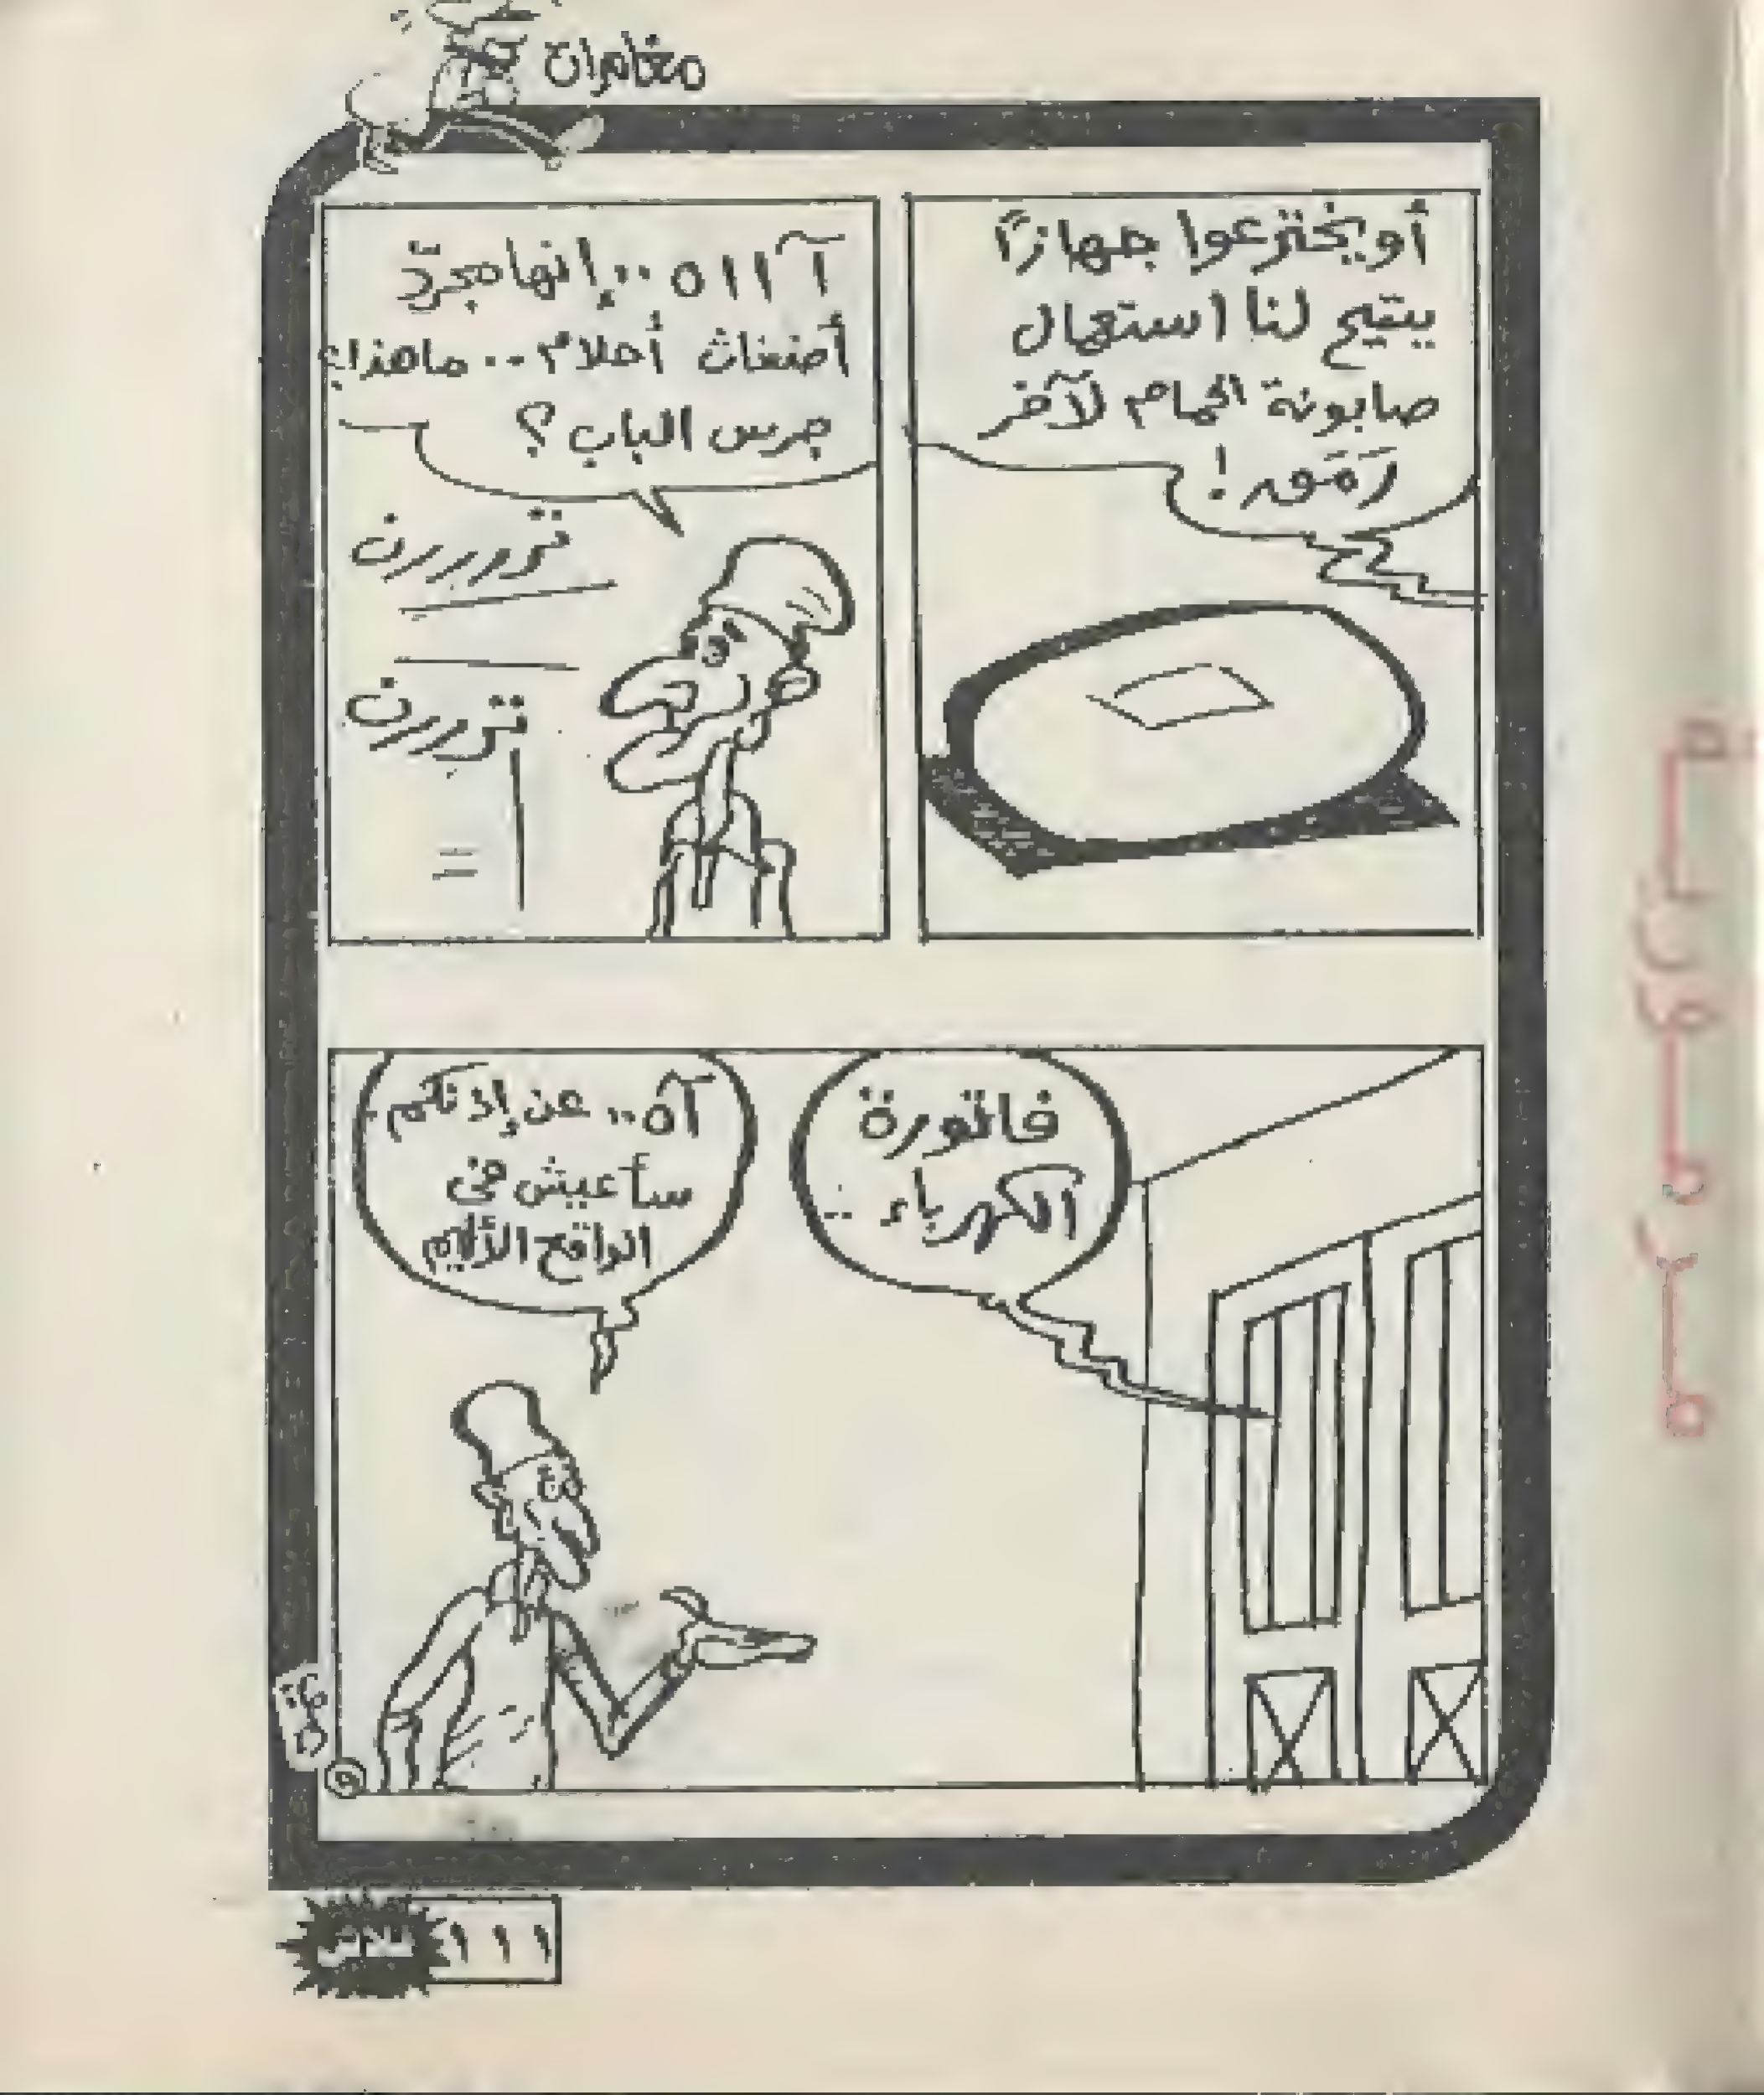 مغامرات
أو يخترعوا جهازًا
يتيح لنا استعمال
صابونة الحمام لآخر
رَمَق !
آ ا ا ه .. إنها مجرّد
أضغاث أحلام .. ما هذا؟
جرس الباب ؟
ترررررن
تررررن
فاتورة
الكهرباء ..
آه .. عن إذنكم
سأعيش في
الواقع الأليم
فلاش
١١١